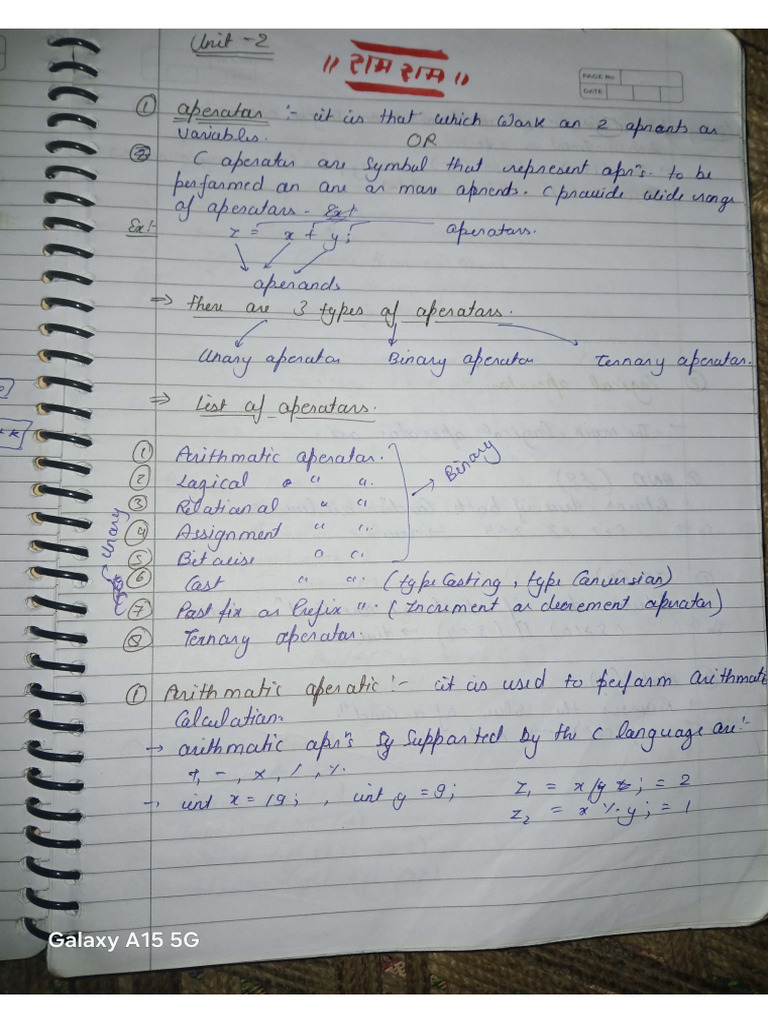 Unit - 2
॥ राम राम ॥
PAGE No
DATE
① operator :- it is that which work on 2 oprants or
variables.
OR
② C operator are symbol that represent opr's. to be
performed on one or more oprends. C provide wide range
of operators. Ex!
Ex!- z = x + y; operators.
operands
⇒ There are 3 types of operators.
Unary operator Binary operator Ternary operator.
⇒ List of operators.
① Arithmatic operator.
② Logical " " Binary
③ Relational " "
④ Assignment " "
⑤ Bitwise " "
Unary
⑥ Cast " " (type Casting, type Conversion)
⑦ Postfix or Prefix ". (Increment or decrement operator)
⑧ Ternary operator.
① Arithmatic operatic :- it is used to perform arithmati
Calculation.
→ arithmatic opr's supported by the C language are:-
+, -, ×, /, %.
→ int x = 19; , int y = 9; z1 = x/y ; = 2
z2 = x % y; = 1
Galaxy A15 5G